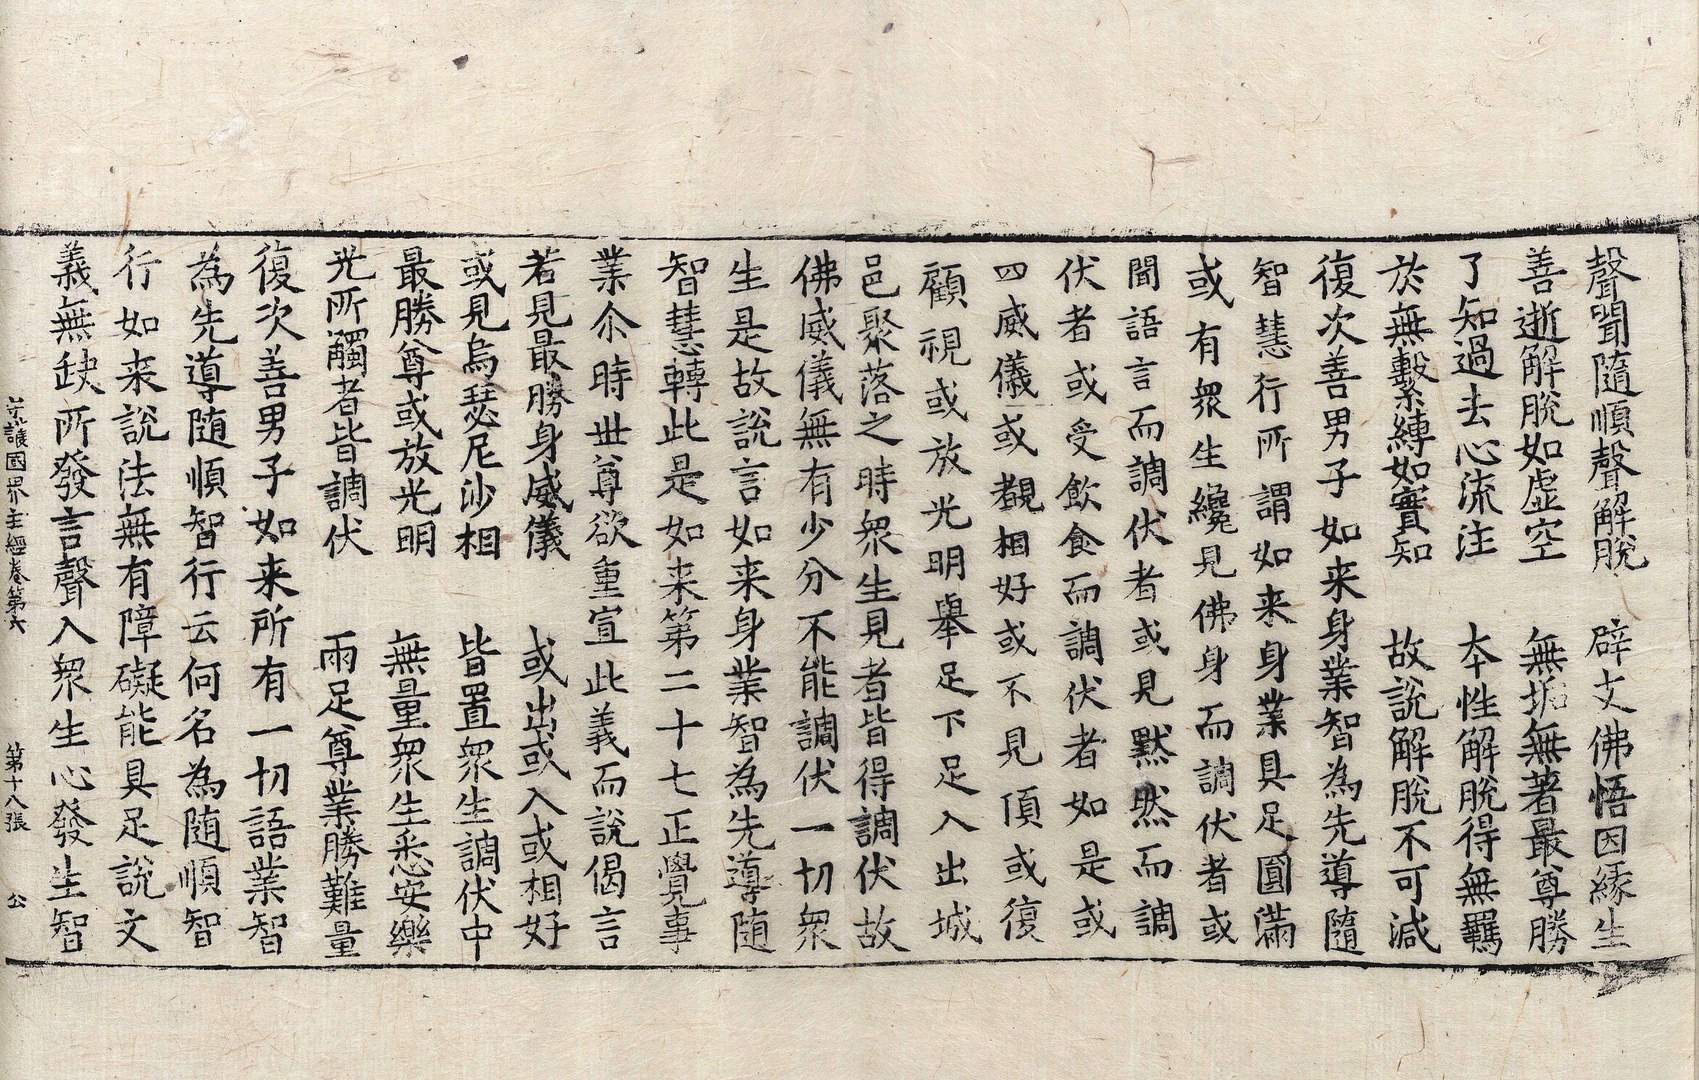 聲聞隨順聲解脫　辟支佛悟因緣生
善逝解脫如虛空　無垢無著最尊勝
了知過去心流注　本性解脫得無羈
於無繫縛如實知　故說解脫不可減
復次善男子如来身業智為先導隨
智慧行所謂如来身業具足圓滿
或有衆生纔見佛身而調伏者或
聞語言而調伏者或見默然而調
伏者或受飲食而調伏者如是或
四威儀或觀相好或不見頂或復
顧視或放光明舉足下足入出城
邑聚落之時衆生見者皆得調伏故
佛威儀無有少分不能調伏一切衆
生是故說言如来身業智為先導随
智慧轉此是如来第二十七正覺事
業尒時世尊欲重宣此義而說偈言
若見最勝身威儀　或出或入或相好
或見烏瑟尼沙相　皆置衆生調伏中
最勝尊或放光明　無量衆生悉安樂
光所觸者皆調伏　兩足尊業勝難量
復次善男子如来所有一切語業智
為先導随順智行云何名為随順智
行如来說法無有障礙能具足說文
義無缺所發言聲入衆生心發生智
守護國界主經卷第六　第十八張　公